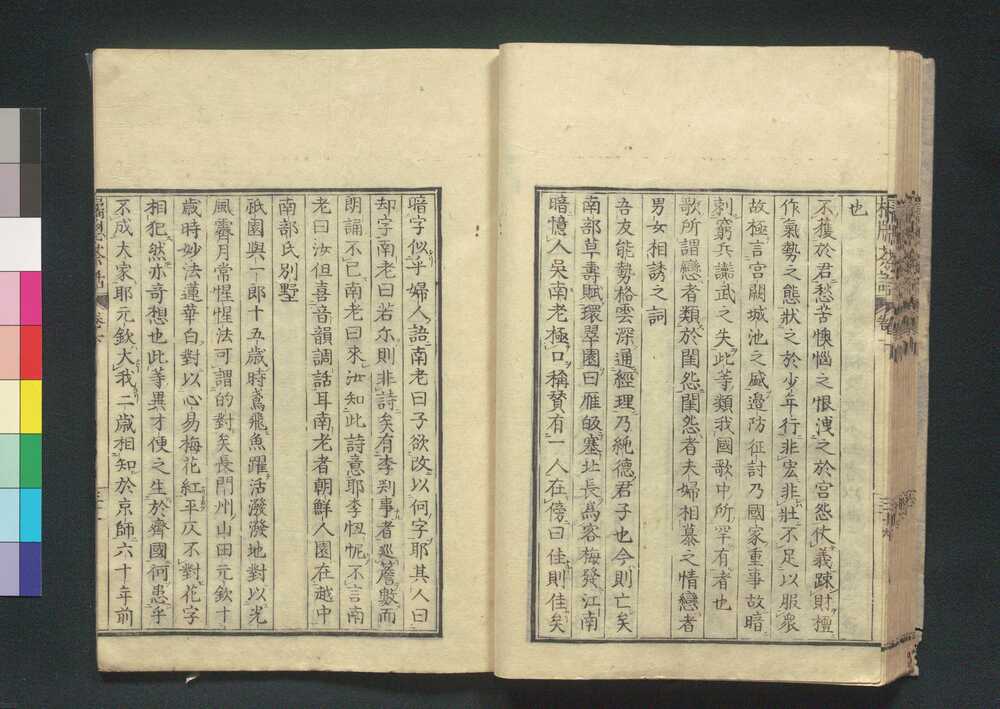 也
不獲於君愁苦懊惱之恨洩之於宮怨仗義疎財擅
作氣勢之態狀之於少年行非宏非壯不足以服衆
故極言宮闕城池之盛邊防征討乃國家重事故暗
刺窮兵讟武之失此等類我國歌中所罕有者也
歌所謂戀者類於閨怨閨怨者夫婦相慕之情戀者
男女相誘之詞
吾友能勢格雲深通經理乃純德君子也今則亡矣
南部草壽賦環翠園曰雁皈塞北長爲客梅發江南
暗憶人吳南老極口稱賛有一人在傍曰佳則佳矣
暗字似乎婦人語南老曰子欲改以何字耶其人曰
却字南老曰若尓則非詩矣有李判事者巡簷數而
朗誦不已南老曰來汝知此詩意耶李忸怩不言南
老曰汝但喜音韻調話耳南老者朝鮮人園在越中
南部氏別墅
祇園與一郎十五歳時鳶飛魚躍活潑潑地對以光
風霽月常惺惺法可謂的對矣長門州山田元欽十
歳時妙法蓮華白對以心易梅花紅平仄不對花字
相犯然亦奇想也此等異才便之生於齊國何患乎
不成大家耶元欽大我二歳相知於京師六十年前
橘窓茶話